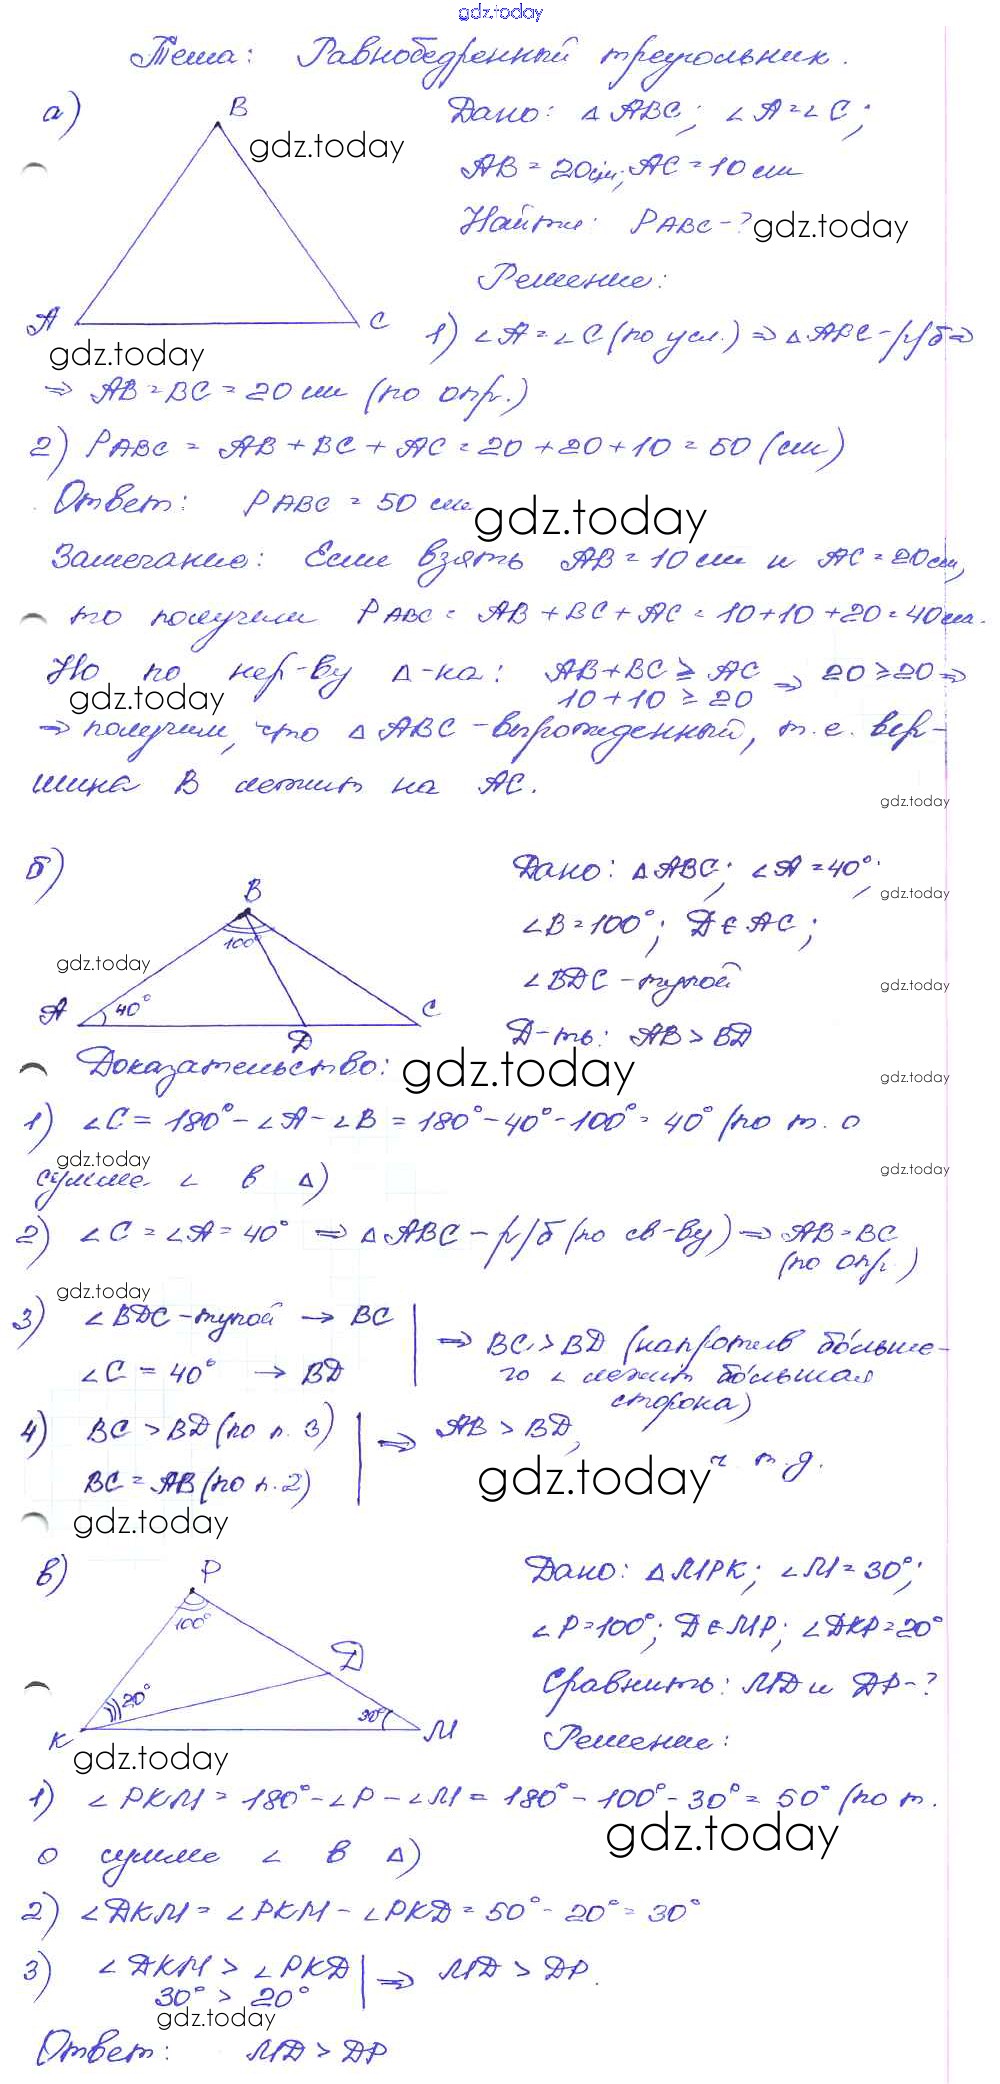 gdz.today
Тема: Равнобедренный треугольник.
а)
B
gdz.today
A
C
gdz.today
Дано: △ABC; ∠A=∠C;
AB = 20см; AC = 10 см
Найти: P ABC - ? gdz.today
Решение:
1) ∠A = ∠C (по усл.) ⇒ △ABC - р/б ⇒
⇒ AB = BC = 20 см (по опр.)
2) P ABC = AB + BC + AC = 20 + 20 + 10 = 50 (см)
Ответ: P ABC = 50 см. gdz.today
Замечание: Если взять AB = 10 см и AC = 20 см,
то получили P ABC = AB + BC + AC = 10 + 10 + 20 = 40 см.
Но по нер-ву △-ка: AB + BC ≥ AC ⇒ 20 ≥ 20 ⇒
gdz.today 10 + 10 ≥ 20
⇒ получим, что △ABC - вырожденный, т.е. вер-
шина B лежит на AC.
gdz.today
б)
B
100°
gdz.today
A
40°
D
C
Дано: △ABC; ∠A = 40°;
gdz.today
∠B = 100°; D ∈ AC;
∠BDC - тупой
gdz.today
Д-ть: AB > BD
Доказательство: gdz.today
gdz.today
1) ∠C = 180° - ∠A - ∠B = 180° - 40° - 100° = 40° (по т. о
gdz.today
сумме ∠ в △)
gdz.today
2) ∠C = ∠A = 40° ⇒ △ABC - р/б (по св-ву) ⇒ AB = BC
(по опр.)
gdz.today
3) ∠BDC - тупой → BC
∠C = 40° → BD
⇒ BC > BD (напротив больше-
го ∠ лежит большая
сторона)
4) BC > BD (по п. 3)
BC = AB (по п. 2)
⇒ AB > BD,
gdz.today ч. т. д.
gdz.today
в)
P
100°
D
20°
30°
K
M
gdz.today
Дано: △MPK; ∠M = 30°;
∠P = 100°; D ∈ MP; ∠DKP = 20°
Сравнить: MD и DP - ?
Решение:
1) ∠PKM = 180° - ∠P - ∠M = 180° - 100° - 30° = 50° (по т.
gdz.today
о сумме ∠ в △)
2) ∠DKM = ∠PKM - ∠PKD = 50° - 20° = 30°
3) ∠DKM > ∠PKD ⇒ MD > DP.
30° > 20°
gdz.today
Ответ: MD > DP